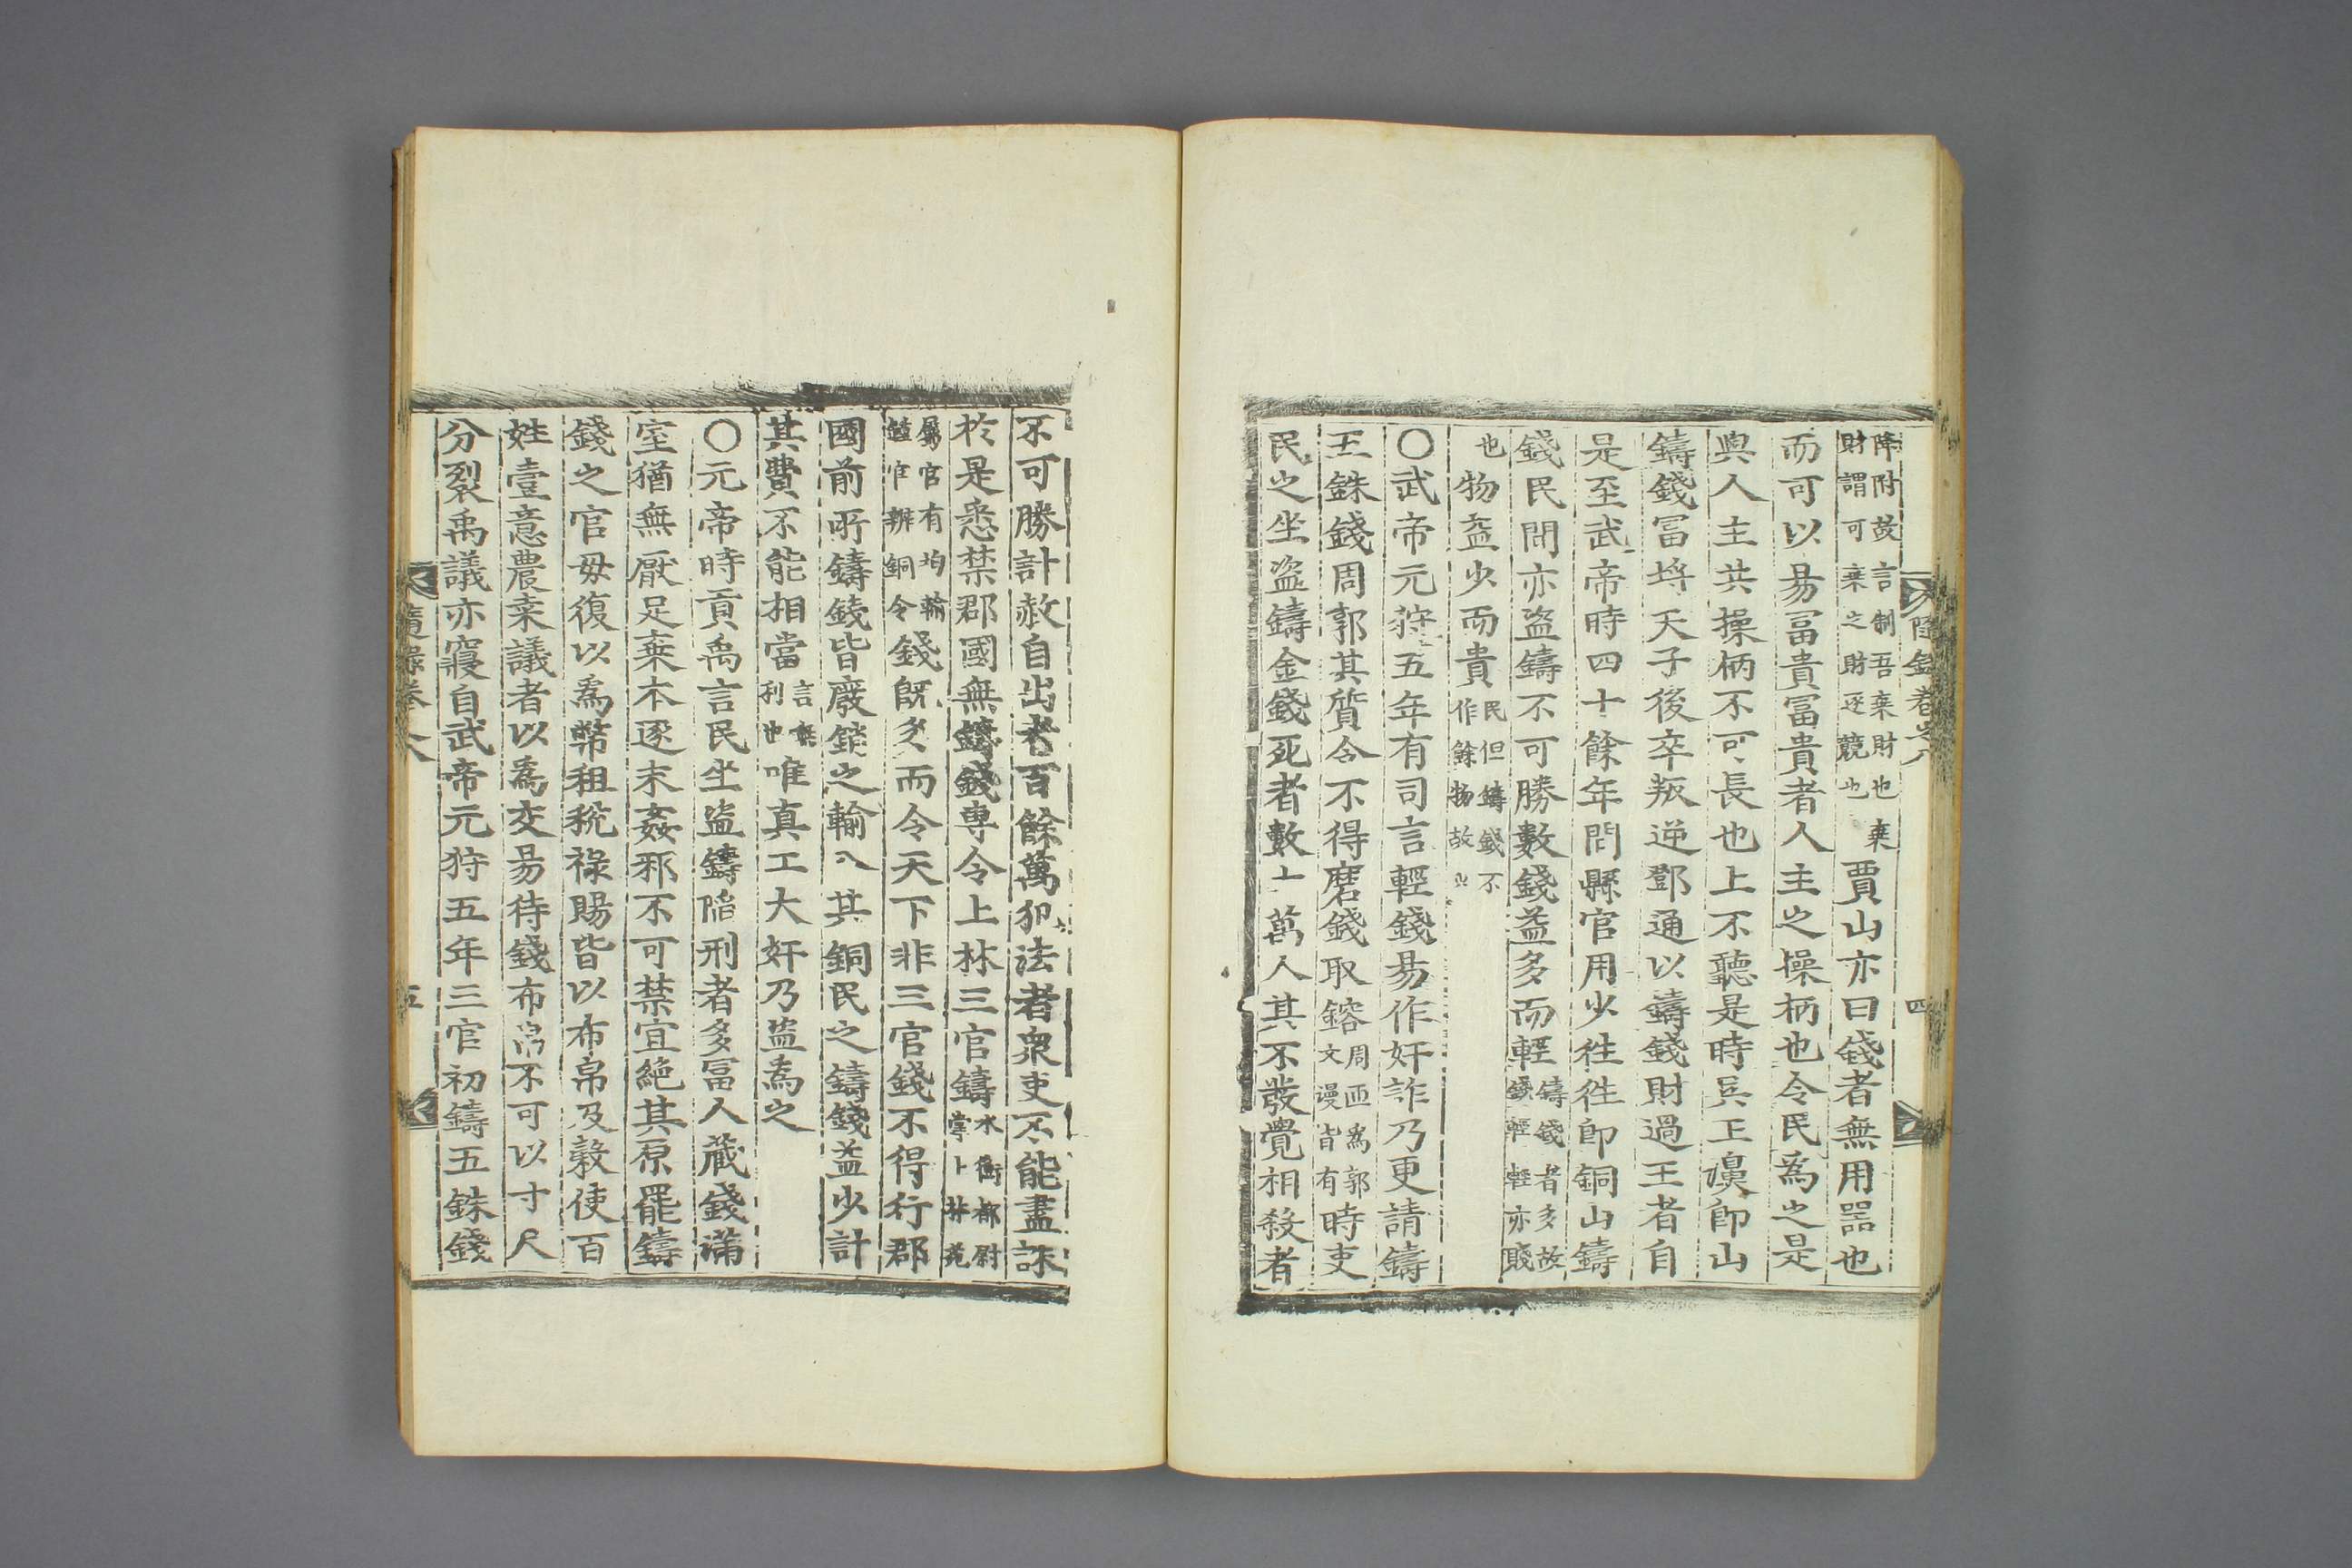 隨錄卷之八
四
降附故言制吾棄財也棄
財謂可棄之財逐競也
賈山亦曰錢者無用器也
而可以易冨貴冨貴者人主之操柄也令民爲之是
與人主共操柄不可長也上不聽是時吳王濞卽山
鑄錢冨埒天子後卒叛逆鄧通以鑄錢財過王者自
是至武帝時四十餘年間縣官用少徃徃卽銅山鑄
錢民間亦盜鑄不可勝數錢益多而輕
鑄錢者多故
錢輕輕亦賤
也
物益少而貴
民但鑄錢不
作餘物故也
〇武帝元狩五年有司言輕錢易作奸詐乃更請鑄
五銖錢周郭其質令不得磨錢取鎔
周匝爲郭
文漫皆有
時吏
民之坐盜鑄金錢死者數十萬人其不發覺相殺者
不可勝計赦自出者百餘萬犯法者衆吏不能盡誅
於是悉禁郡國無鑄錢專令上林三官鑄
水衡都尉
掌上林苑
屬官有均輸
鍾官辨銅令
錢旣多而令天下非三官錢不得行郡
國前所鑄錢皆廢銷之輸入其銅民之鑄錢益少計
其費不能相當
言無
利也
唯真工大奸乃盜爲之
〇元帝時貢禹言民坐盜鑄陷刑者多冨人藏錢滿
室猶無厭足棄本逐末姦邪不可禁宜絶其原罷鑄
錢之官毋復以爲幣租稅祿賜皆以布帛及穀使百
姓壹意農桒議者以爲交易待錢布帛不可以寸尺
分裂禹議亦寢自武帝元狩五年三官初鑄五銖錢
隨錄卷八
五